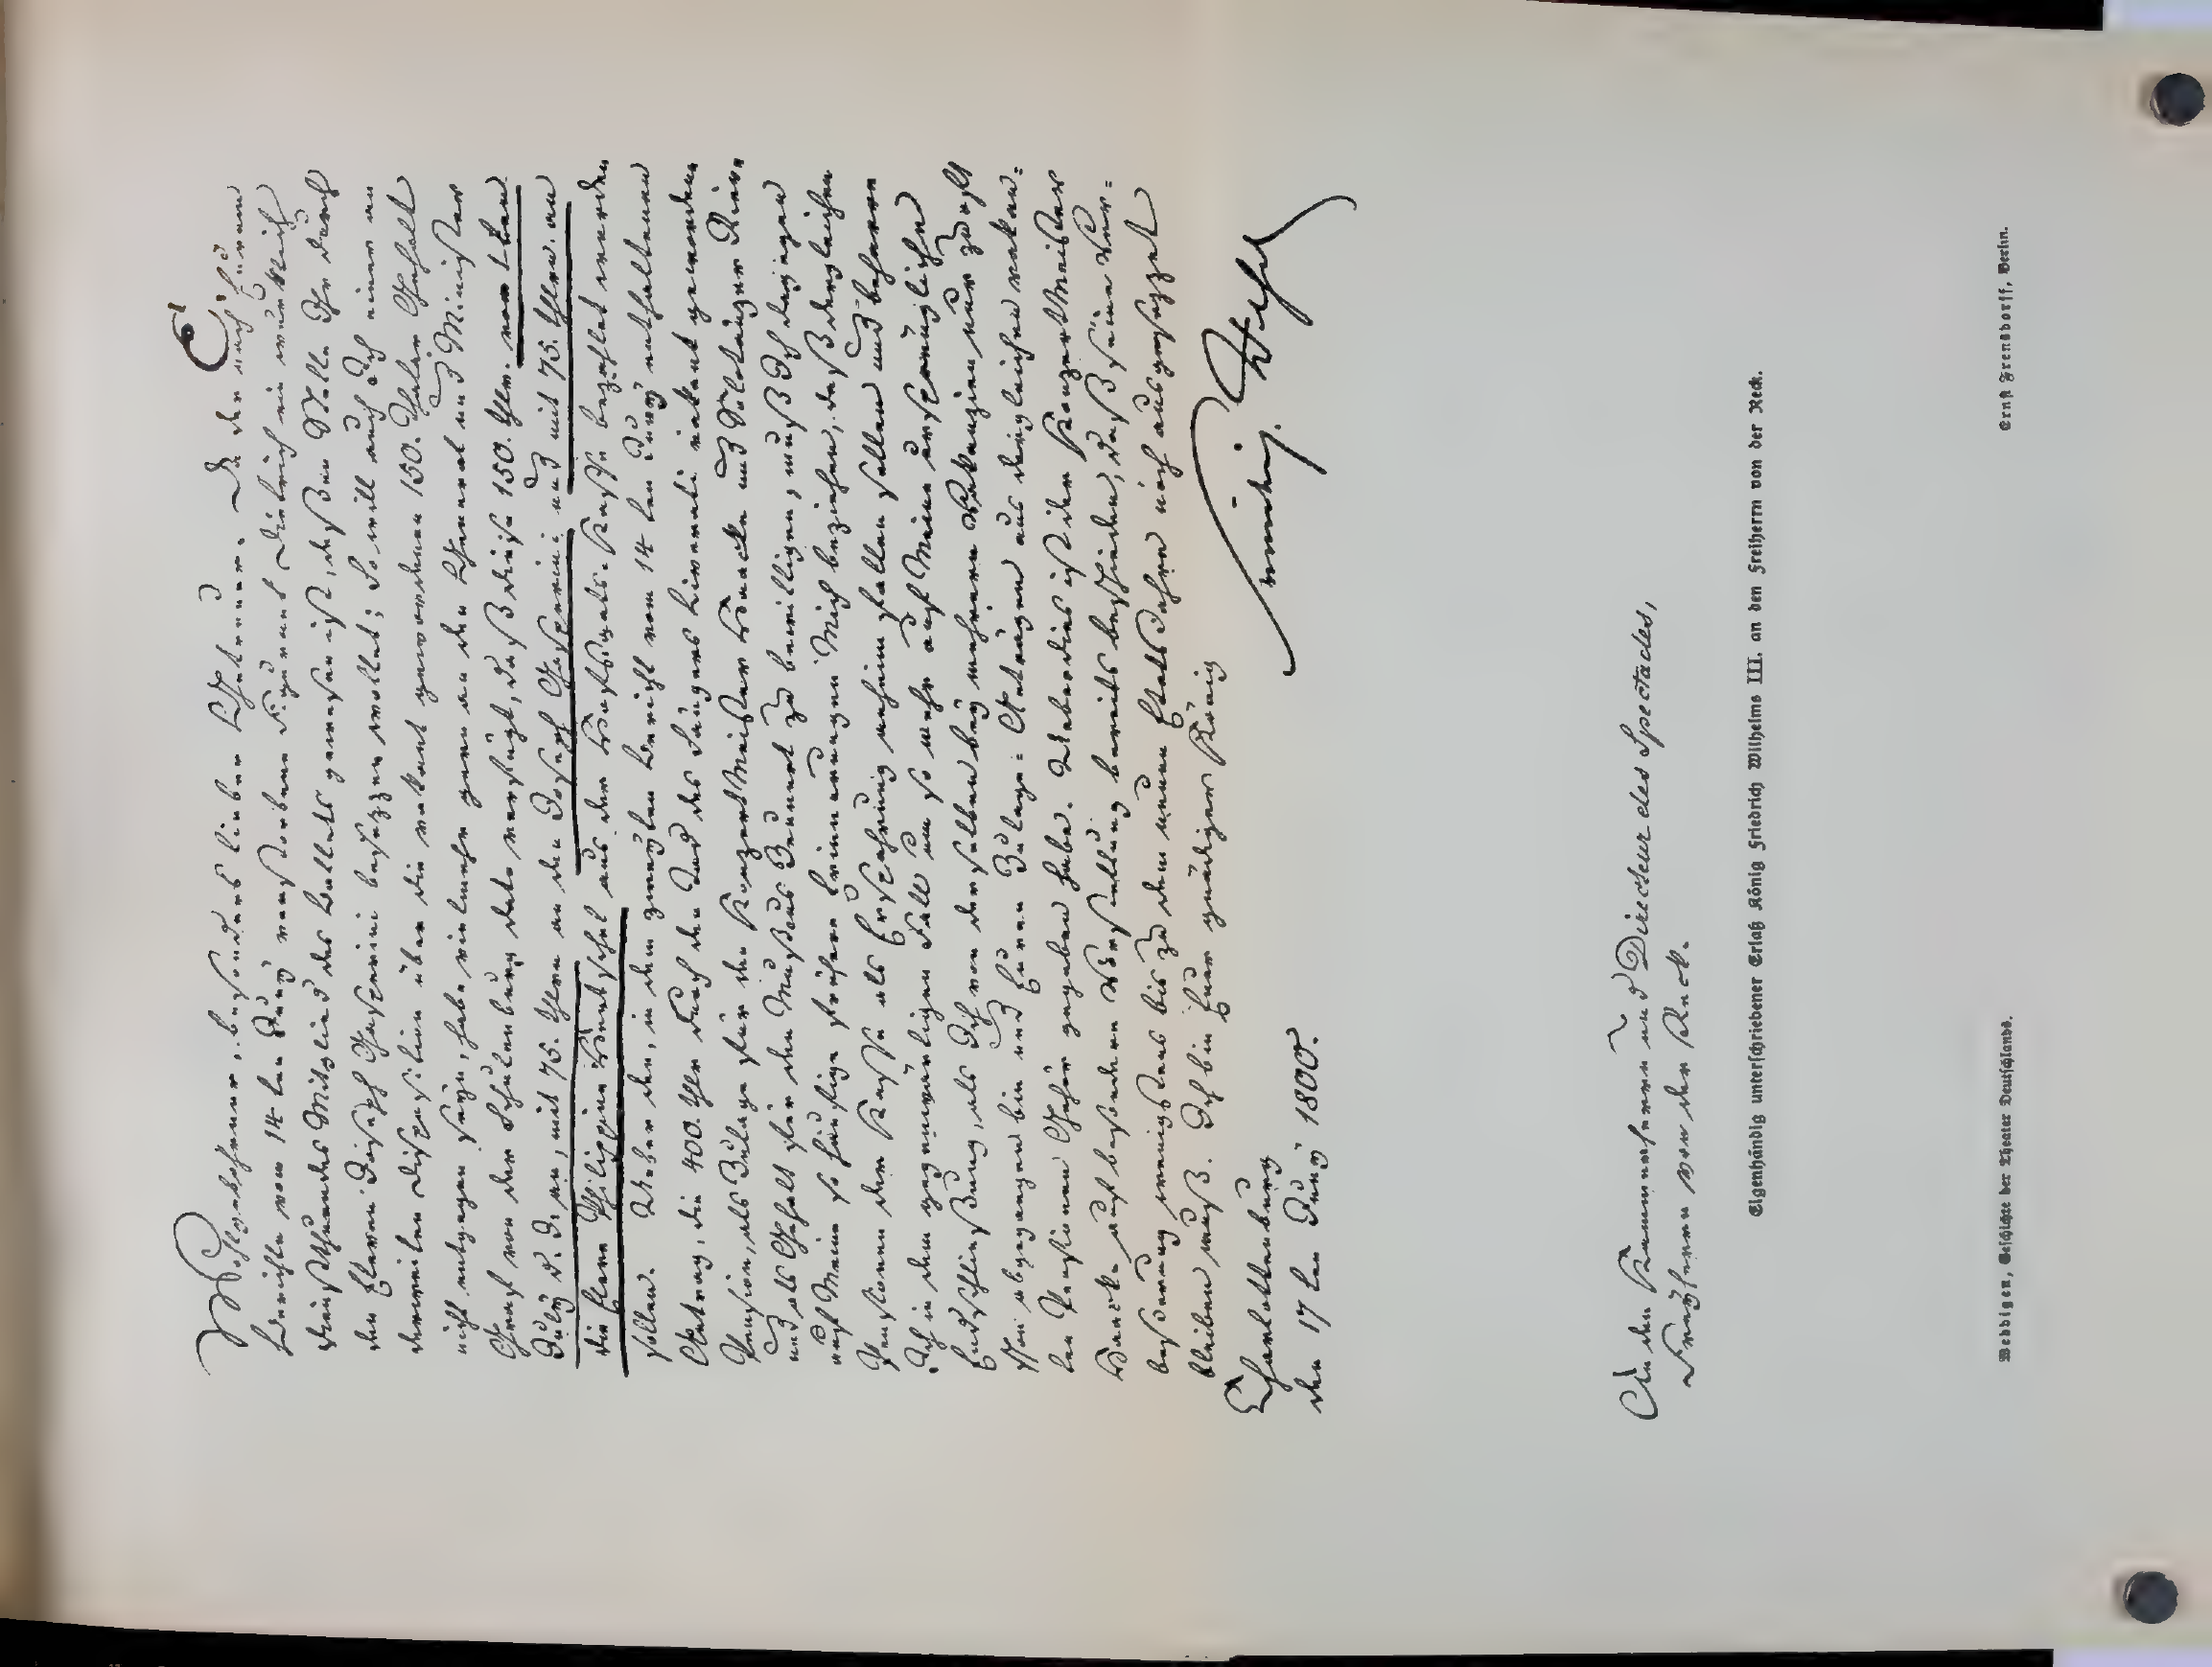 Wohlgebohrner, besonders lieber Getreuer. Da der nach Eurem
Berichte vom 14 ten Juny verstorbene Figurant Dieterich ein würklich
dienstthuendes Mitglied des Ballets gewesen ist, dessen Stelle Ihr durch
den Eleven Joseph Gasperini besezzen wollet; So will auch Ich einer an-
derweiten Disposition über die vakant gewordenen 150. Thaler Gehalt
nicht entgegen seyn, habe vielmehr gern an den General und Minister
Graf von der Schulenburg dato verfügt, daß diese 150. Thlr. vom 1 ten
July d. J. an, mit 75. Thlrn an den Joseph Gasperini und mit 75. Thlrn. an
die Eleve Philippine aus der Hofstaats-Kasse bezahlet werden
sollen. Ueber den, in dem zweyten Bericht vom 14 ten Juny enthaltenen
Antrag, die 400. Thlr durch den Tod des Sängers vakant gewordene
Pension, als Zulage für den KonzertMeister Haack und
und als Gehalt für den zu bewilligen, muß Ich dagegen
auf Meine so häufige frühere Erinnerungen Mich beziehen, daß dergleichen
Pensionen der Kasse als Ersparung anheim fallen sollen und beharre
Ich in dem gegenwärtigen Fall um so mehr auf Meine ursprüngliche
Entschließung, als Ich von derselben bey mehrern Vakanzien nur zu oft
schon abgegangen bin und Euren Zulage-Anträgen aus dergleichen vakan-
ten Pensionen Gehör gegeben habe. Ueberdies ist der KonzertMeister
Haack auf besondere Vorstellung bereits beschieden, daß seine Ver-
besserung wenigstens bis zu dem neuen EtatsJahre noch ausgesezzet
bleiben muß. Ich bin Euer gnädiger König
Charlottenburg
den 17 ten Juny 1800.
An den Kammerherrn und Directeur des Spectacles,
Freyherrn von der Reck.
Eigenhändig unterschriebener Erlaß König Friedrich Wilhelms III. an den Freiherrn von der Reck.
Weddigen, Geschichte der Theater Deutschlands.
Ernst Frensdorff, Berlin.